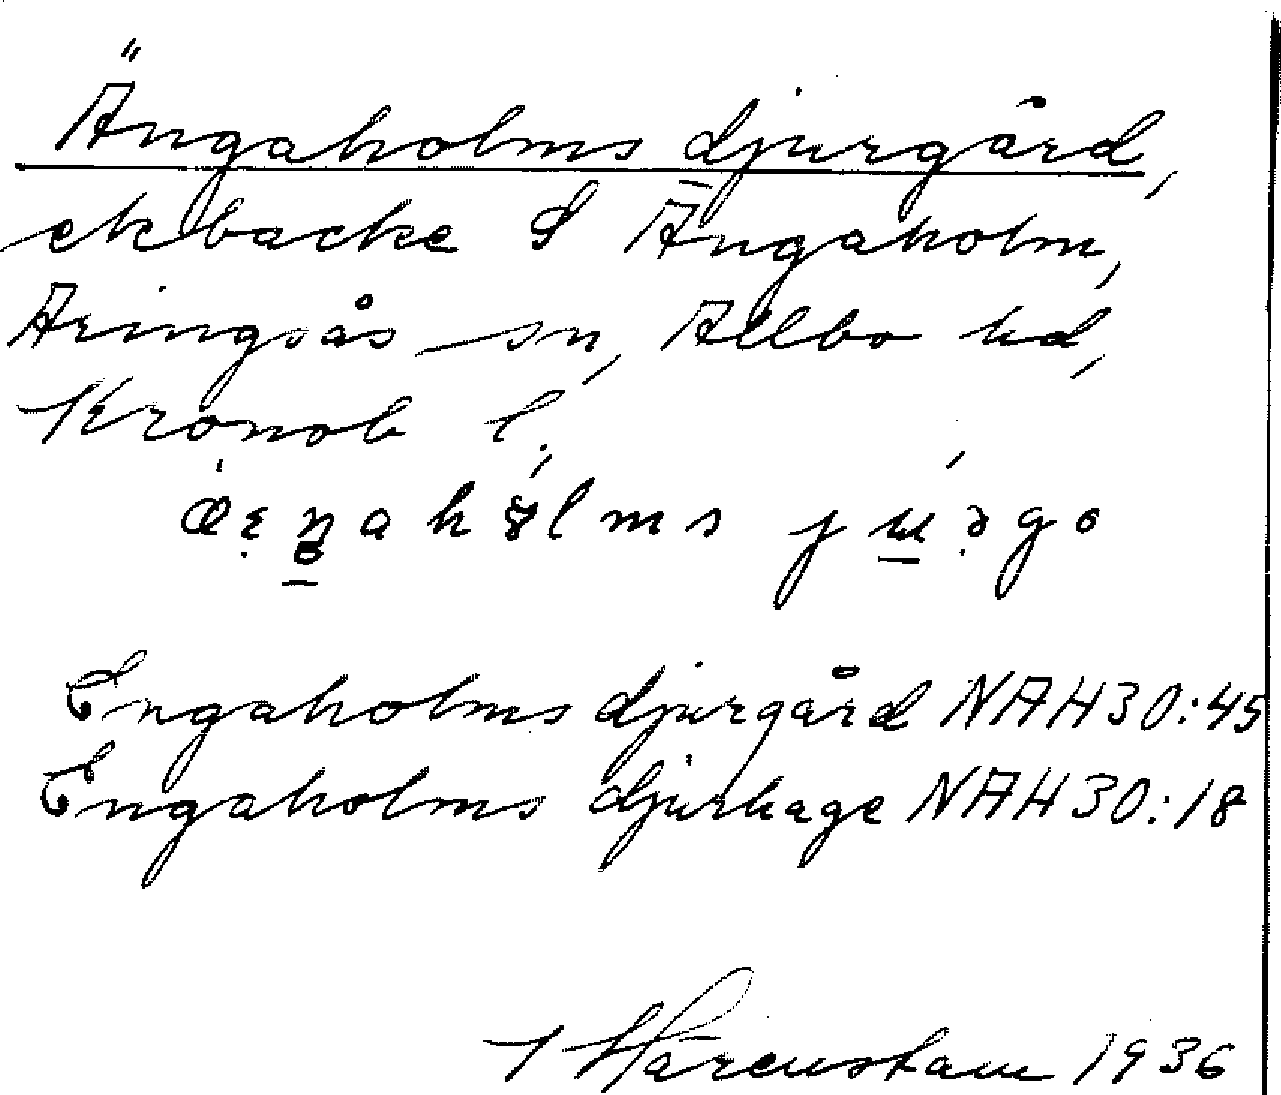 Ängaholms djurgård,
ekbacke S Ängaholm,
Aringsås sn, Allbo hd,
Kronob l.,
Engaholms djurgård NAH30:45
Engaholms djurhage NAH30:18
1936